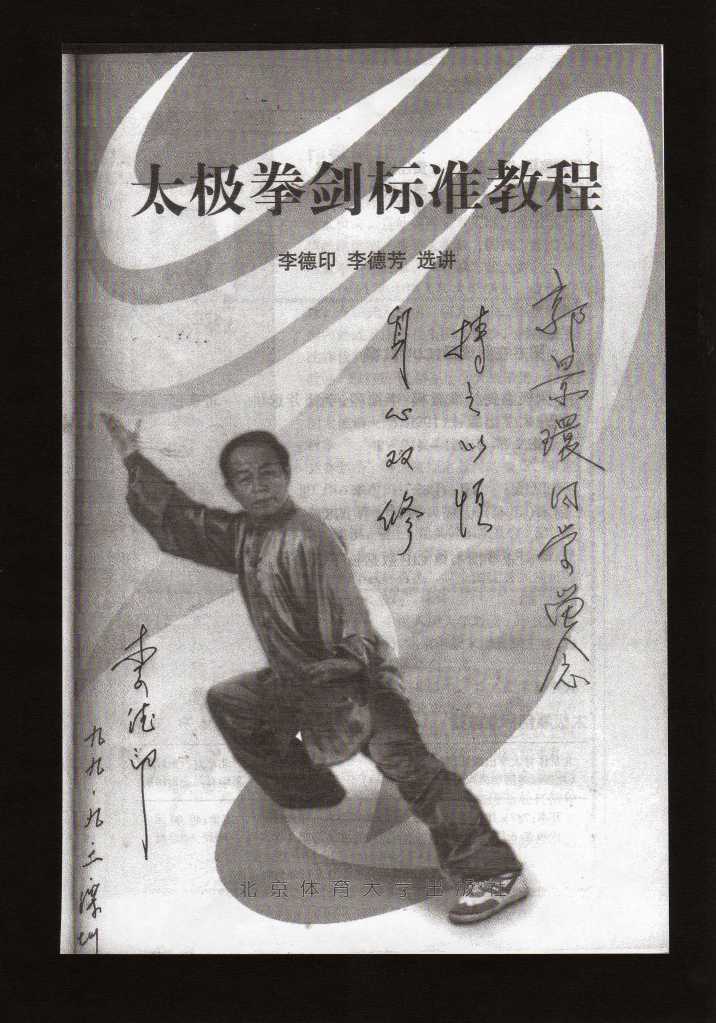 太极拳剑标准教程
李德印 李德芳 选讲
郭景環同学留念
持之以恒
身心双修
李德印
九九·九 深圳
北京体育大学出版社